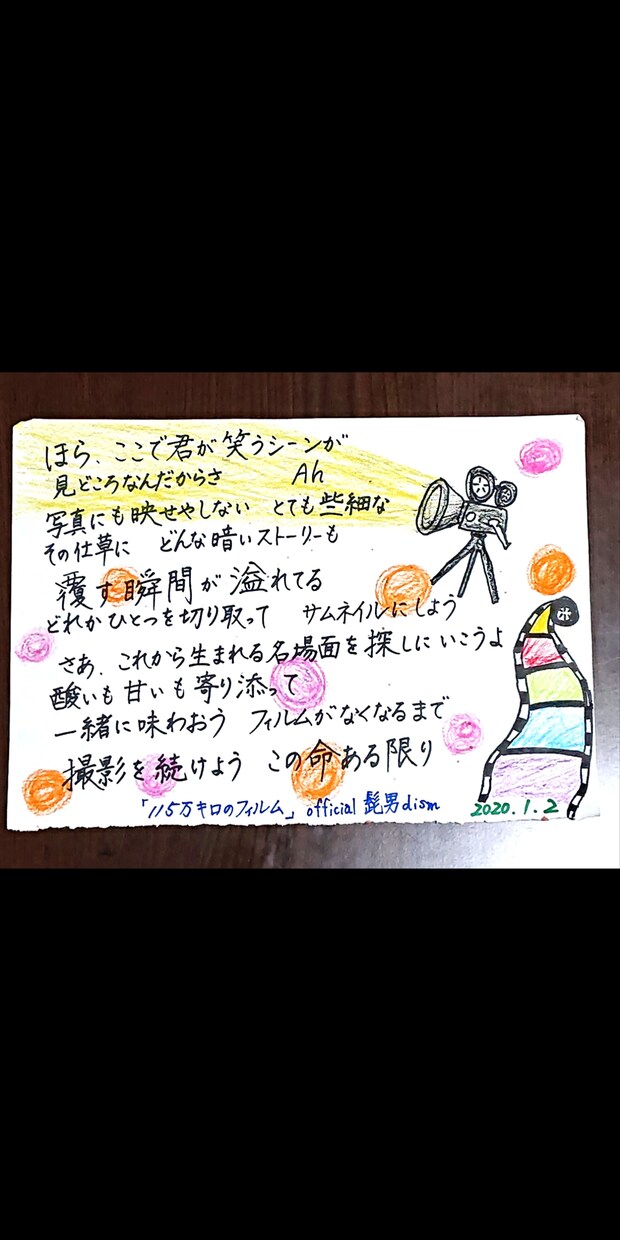 ほら、ここで君が笑うシーンが
見どころなんだからさ　Ah
写真にも映せやしない　とても些細な
その仕草に　どんな暗いストーリーも
覆す瞬間が溢れてる
どれかひとつを切り取って　サムネイルにしよう
さあ、これから生まれる名場面を探しにいこうよ
酸いも甘いも寄り添って
一緒に味わおう　フィルムがなくなるまで
撮影を続けよう　この命ある限り
「115万キロのフィルム」 official 髭男dism 2020.1.2